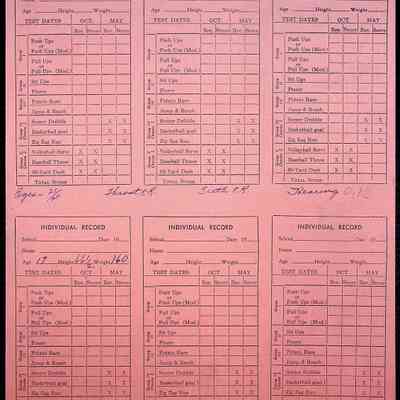 Age Height Weight Age Height Weight Age Height Weight
TEST DATES OCT MAY TEST DATES OCT MAY TEST DATES OCT MAY
Push Ups Push Ups Push Ups
or or or
Push Ups (Mod.) Push Ups (Mod.) Push Ups (Mod.)
Pull Ups Pull Ups Pull Ups
or or or
Pull Ups (Mod.) Pull Ups (Mod.) Pull Ups (Mod.)
Sit Ups Sit Ups Sit Ups
Potato Race Potato Race Potato Race
Jump & Reach Jump & Reach Jump & Reach
Soccer Dribble X X Soccer Dribble X X Soccer Dribble X X
Basketball goal X X Basketball goal X X Basketball goal X X
Zig Zag Run X X Zig Zag Run X X Zig Zag Run X X
Volleyball Serve X X Volleyball Serve X X Volleyball Serve X X
Baseball Throw X X Baseball Throw X X Baseball Throw X X
60-Yard Dash X X 60-Yard Dash X X 60-Yard Dash X X
Total Score Total Score Total Score
Throat O.K. Teeth O.K. Hearing O.K.
INDIVIDUAL RECORD INDIVIDUAL RECORD INDIVIDUAL RECORD
School Date 19 School Date 19 School Date 19
Name Name Name
Age Height Weight 160 Age Height Weight Age Height Weight
TEST DATES OCT MAY TEST DATES OCT MAY TEST DATES OCT MAY
Push Ups Push Ups Push Ups
or or or
Push Ups (Mod.) Push Ups (Mod.) Push Ups (Mod.)
Pull Ups Pull Ups Pull Ups
or or or
Pull Ups (Mod.) Pull Ups (Mod.) Pull Ups (Mod.)
Sit Ups Sit Ups Sit Ups
Potato Race Potato Race Potato Race
Jump & Reach Jump & Reach Jump & Reach
Soccer Dribble X X Soccer Dribble X X Soccer Dribble X X
Basketball goal X X Basketball goal X X Basketball goal X X
Zig Zag Run X X Zig Zag Run X X Zig Zag Run X X